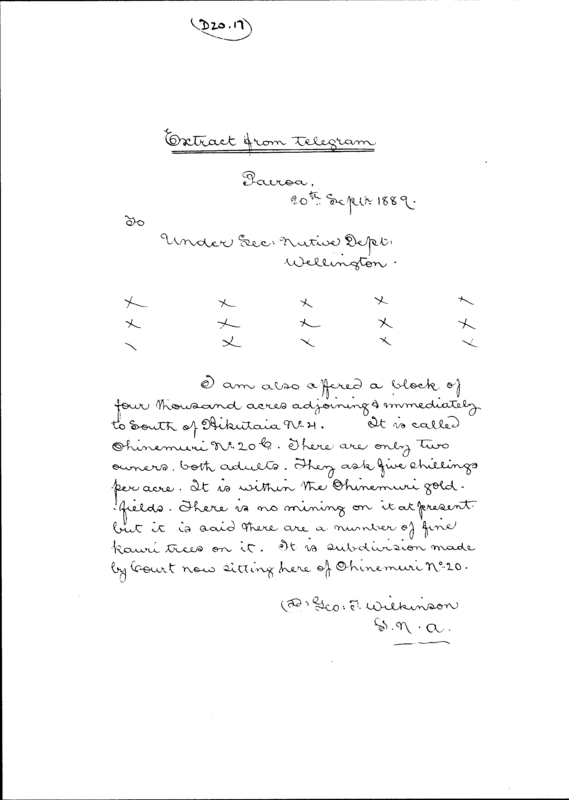 (D20.17)
Extract from telegram
Paeroa,
20th Septr 1889.
To
Under Sec: Native Dept:
Wellington.
x x x x x
x x x x x
x x x x x
I am also offered a block of
four thousand acres adjoining & immediately
to South of Hikutaia No. 4. It is called
Ohinemuri No. 20 C. There are only two
owners, both adults. They ask five shillings
per acre. It is within the Ohinemuri gold-
-fields. There is no mining on it at present
but it is said there are a number of fine
kauri trees on it. It is subdivision made
by Court now sitting here of Ohinemuri No. 20.
Geo: T. Wilkinson